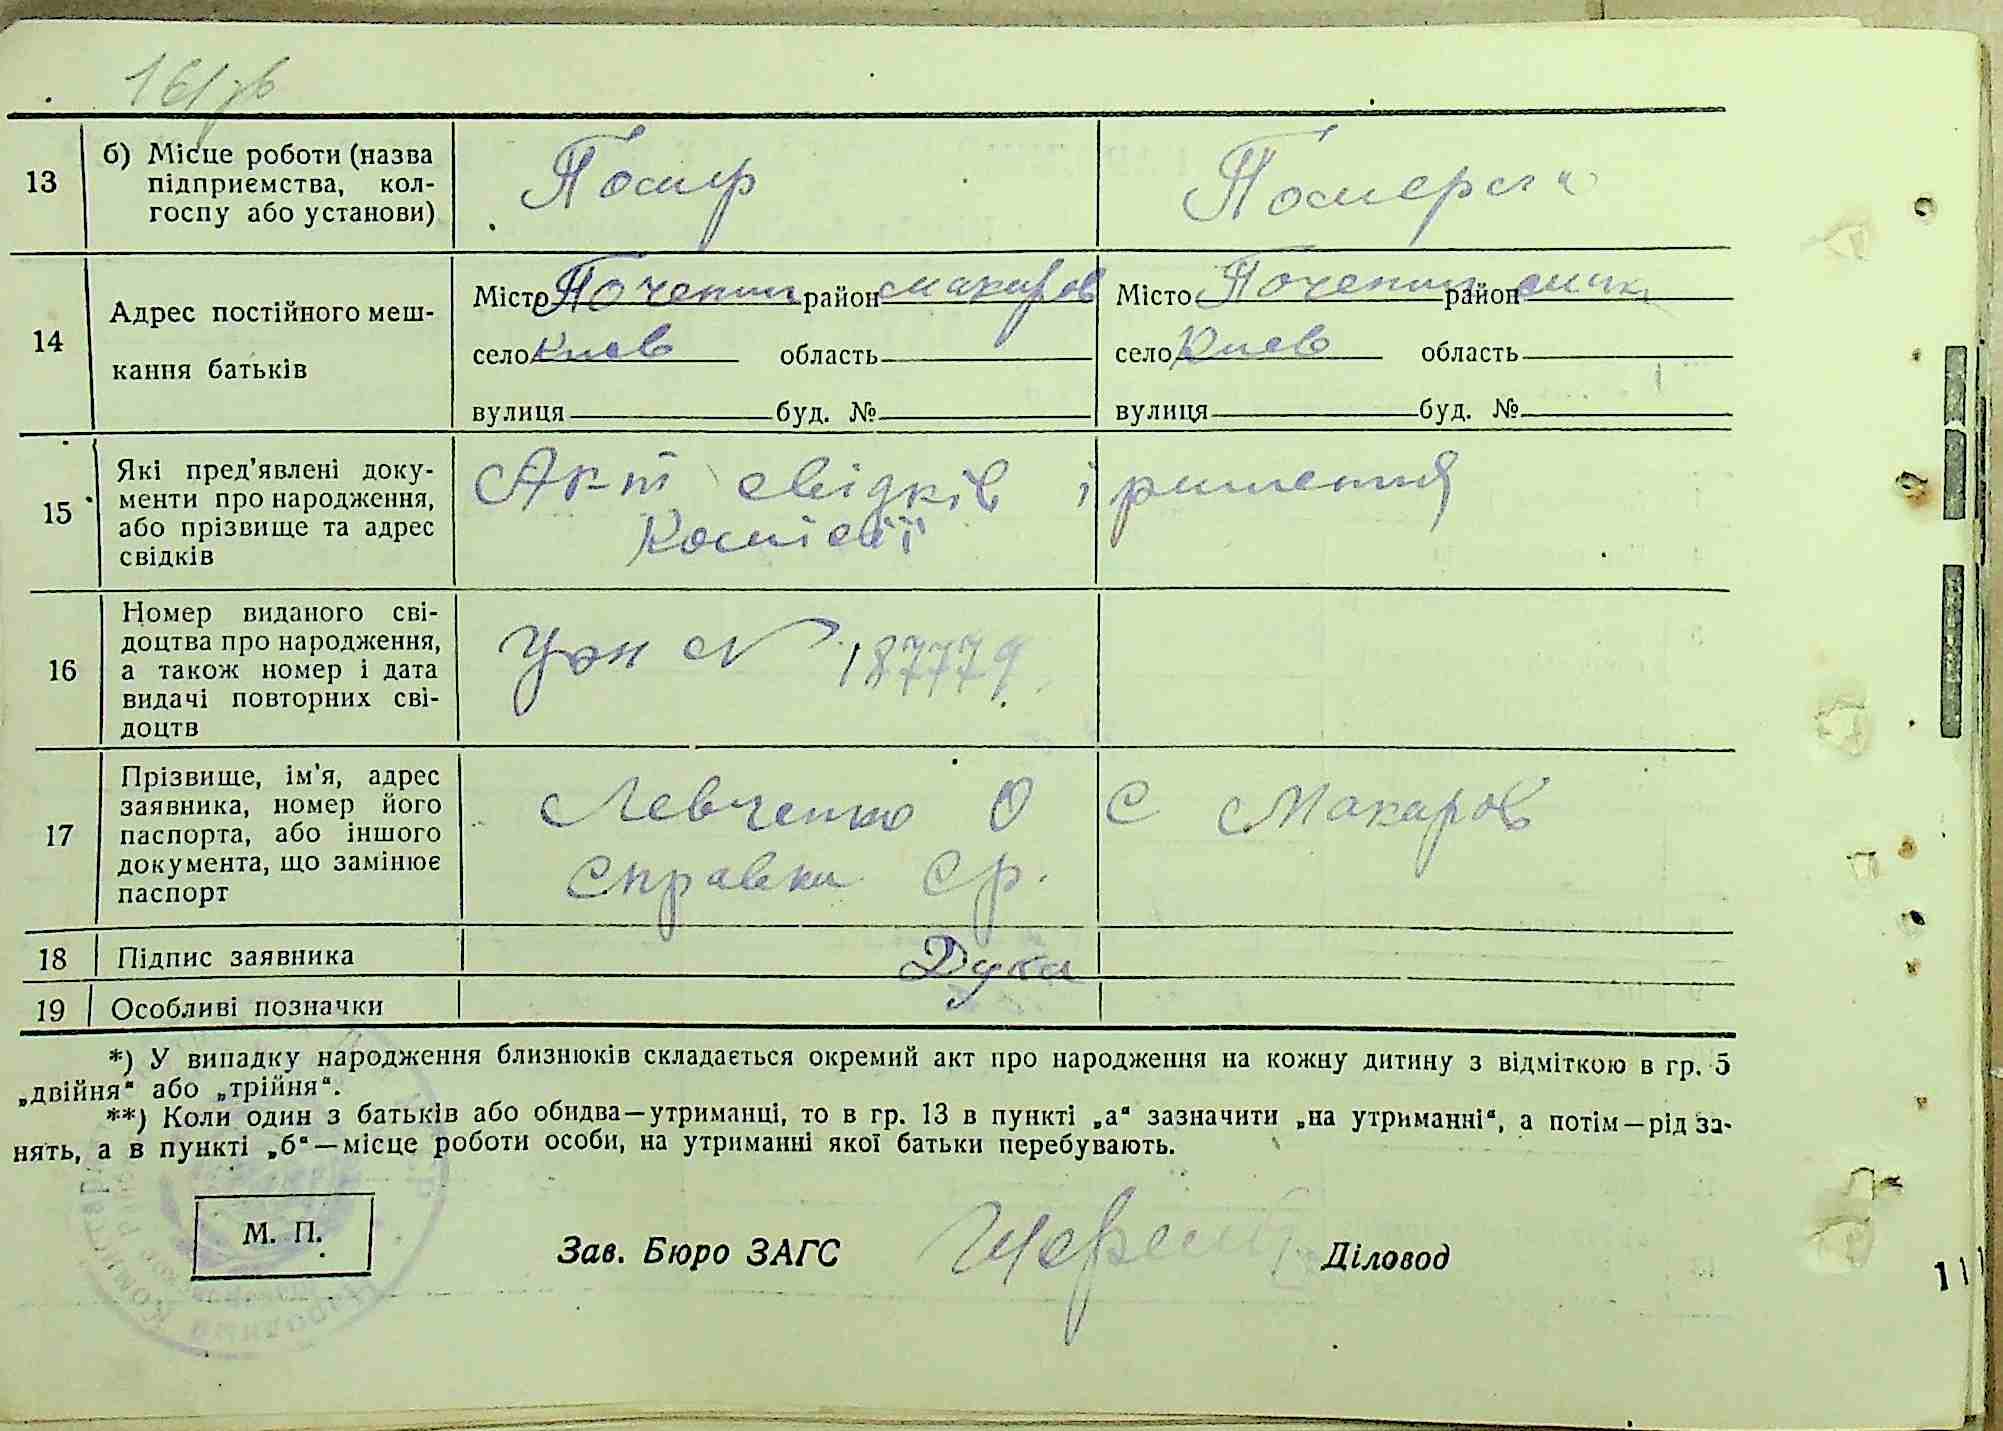 16/зв
13 б) Місце роботи (назва підприємства, колгоспу або установи)
Помер
Померла
14 Адрес постійного мешкання батьків
Місто Почепин район Макаров
село Киев область
вулиця буд. №
Місто Почепин район Мак
село Киев область
вулиця буд. №
15 Які пред'явлені документи про народження, або прізвище та адрес свідків
Акт свідків і ришення
Комісії
16 Номер виданого свідоцтва про народження, а також номер і дата видачі повторних свідоцтв
№ 187779
17 Прізвище, ім'я, адрес заявника, номер його паспорта, або іншого документа, що замінює паспорт
Левченко О С Макаров
Справка ср.
18 Підпис заявника
Дука
19 Особливі позначки
*) У випадку народження близнюків складається окремий акт про народження на кожну дитину з відміткою в гр. 5
„двійня“ або „трійня“.
**) Коли один з батьків або обидва—утриманці, то в гр. 13 в пункті „а“ зазначити „на утриманні“, а потім—рід за-
нять, а в пункті „б“—місце роботи особи, на утриманні якої батьки перебувають.
М. П.
Зав. Бюро ЗАГС
Діловод